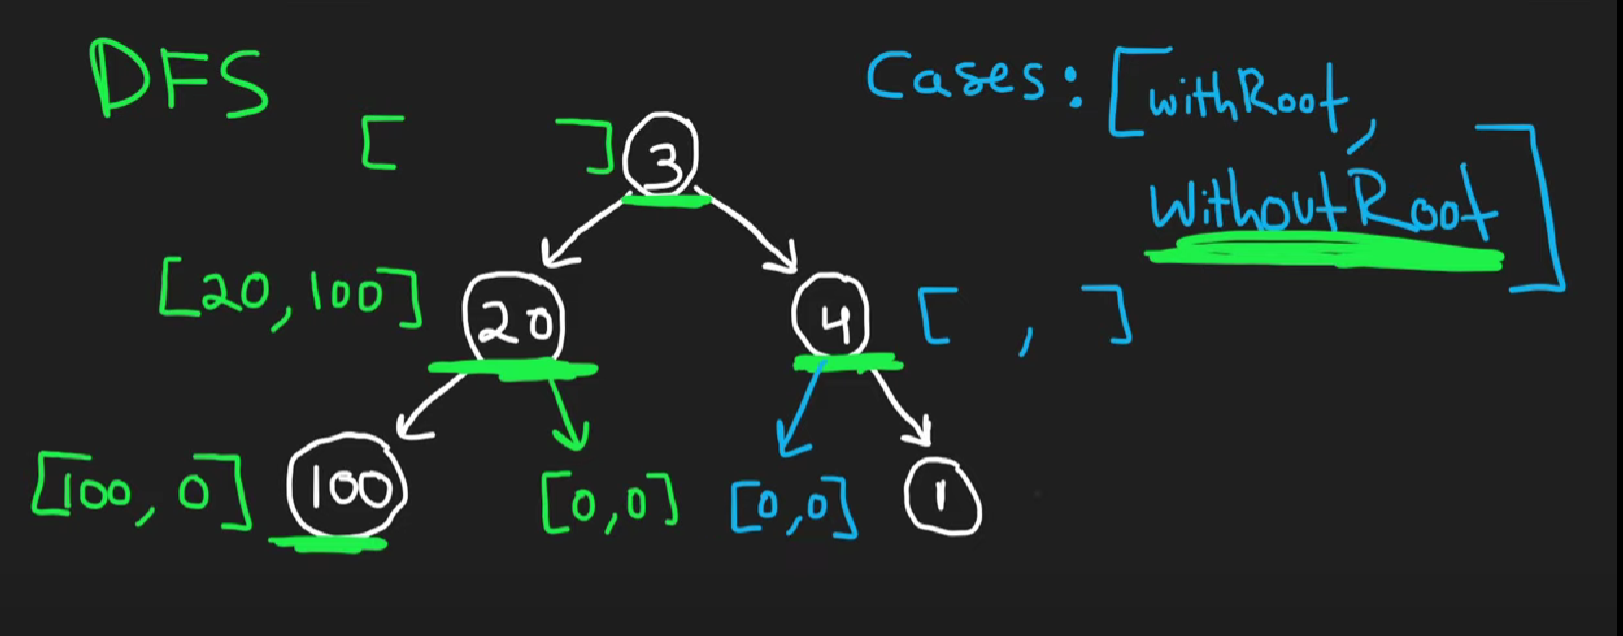 DFS
Cases: [withRoot,
WithoutRoot]
[ ] 3
[20, 100] 20
4 [ , ]
[100, 0] 100
[0,0]
[0,0]
1